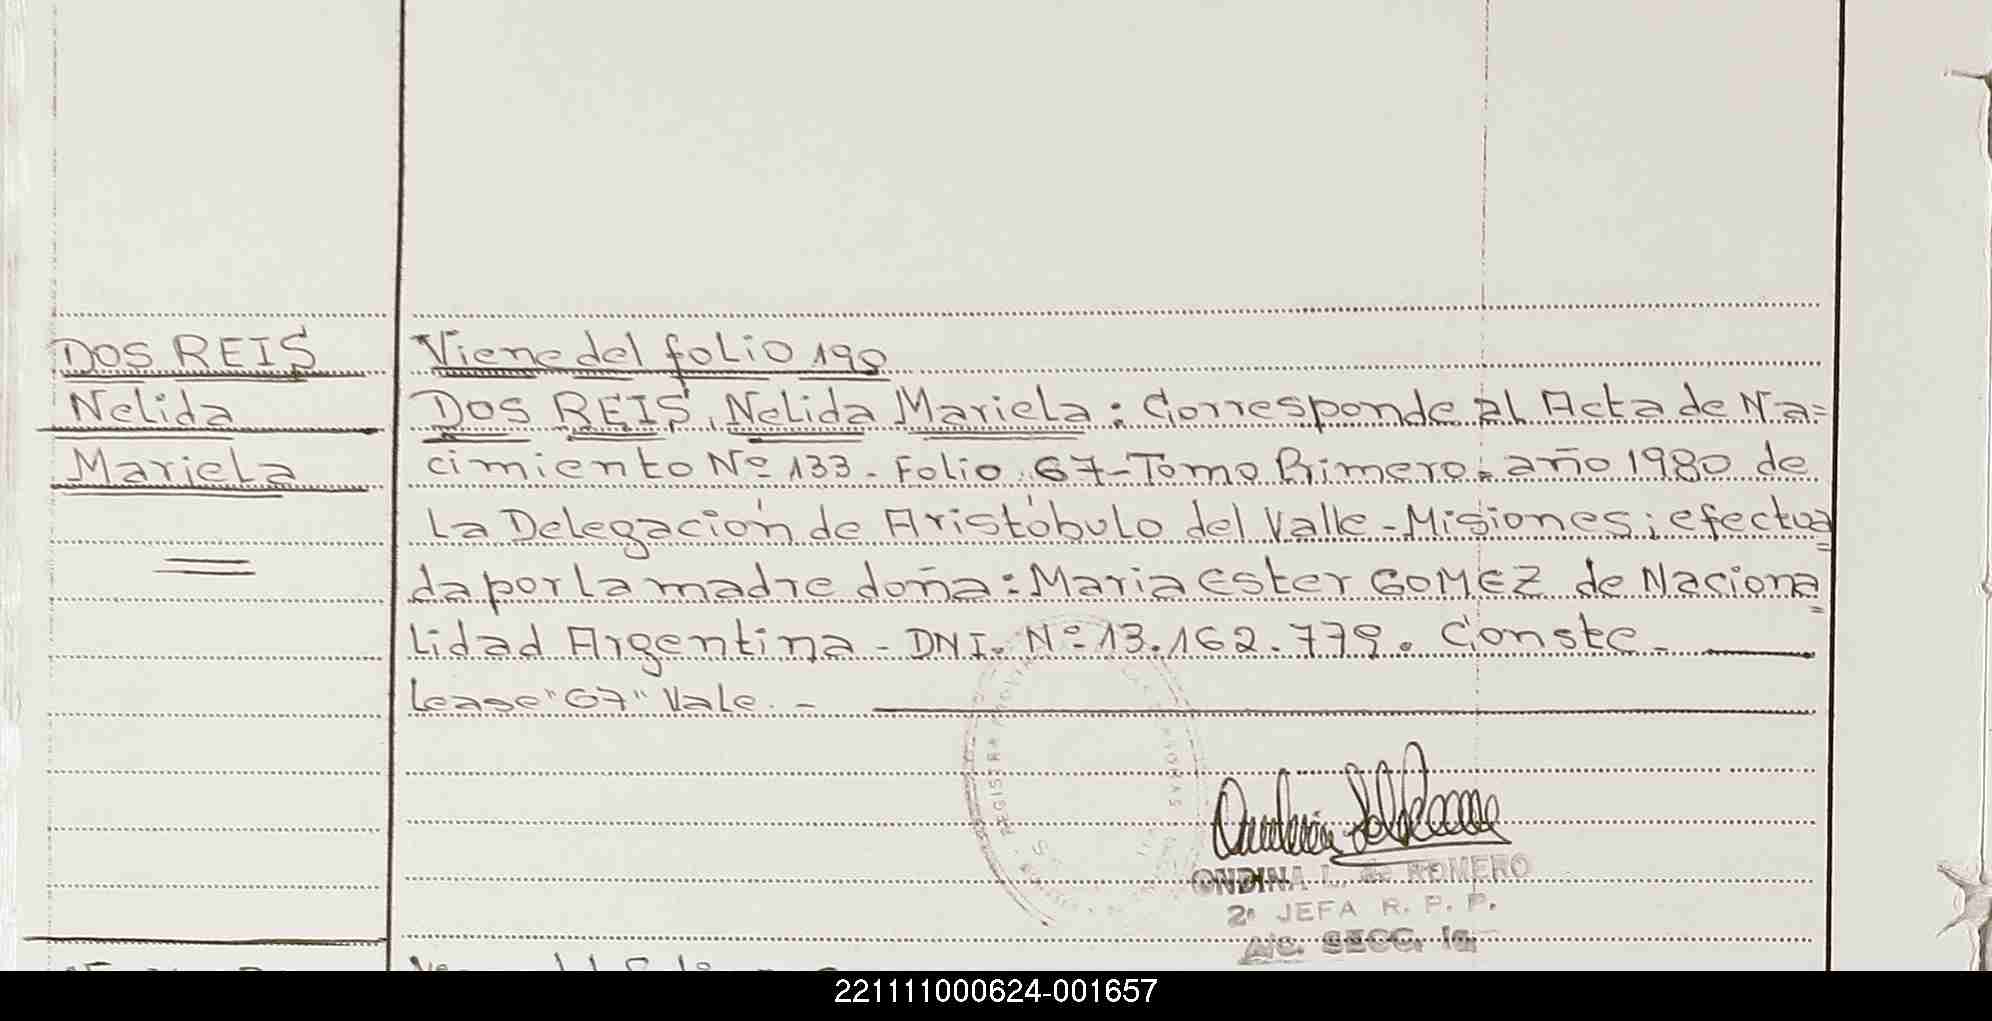 DOS REIS
Nelida
Mariela
Viene del folio 190
DOS REIS, Nelida Mariela: Corresponde al Acta de Na=
cimiento Nº 133 - Folio 67 - Tomo Primero - año 1980 de
la Delegación de Aristóbulo del Valle - Misiones; efectua=
da por la madre doña: Maria Ester GOMEZ de Naciona=
lidad Argentina - DNI. Nº 13.162.779. Conste -
Lease "67" Vale. -
ONDINA L. de ROMERO
2ª JEFA R. P. P.
A/C. SECC. 1a.
221111000624-001657